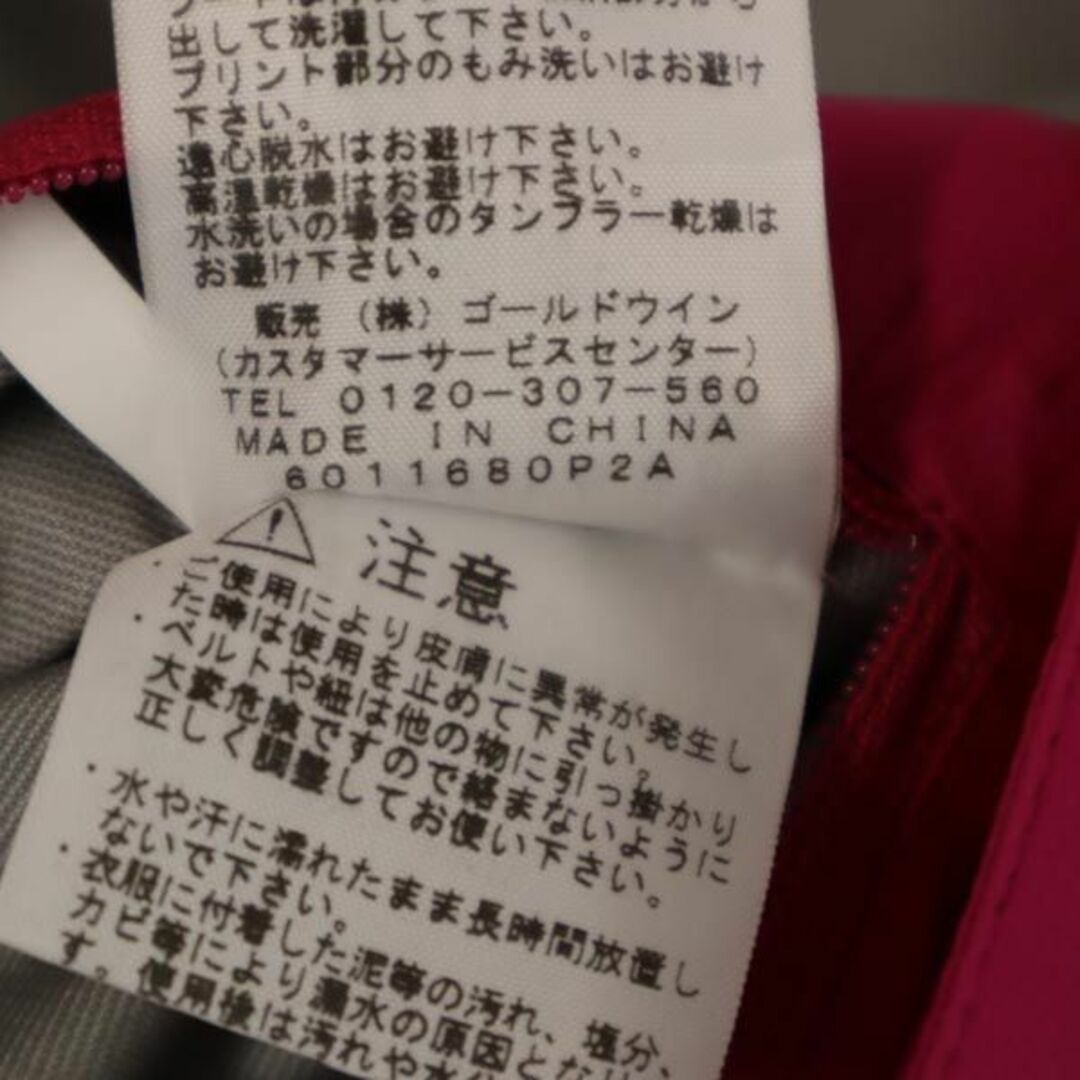 出して洗濯して下さい。
プリント部分のもみ洗いはお避け
下さい。
遠心脱水はお避け下さい。
高温乾燥はお避け下さい。
水洗いの場合のタンブラー乾燥は
お避け下さい。
販売 (株) ゴールドウイン
(カスタマーサービスセンター)
TEL 0120-307-560
MADE IN CHINA
6011680P2A
注意
・ご使用により皮膚に異常が発生し
た時は使用を止めて下さい。
・ベルトや紐は他の物に引っ掛かり
大変危険ですので絡まないように
正しく調整してお使い下さい。
・水や汗に濡れたまま長時間放置し
ないで下さい。
・衣服に付着した泥等の汚れ、塩分、
カビ等により漏水の原因とな
す。使用後は汚れや水